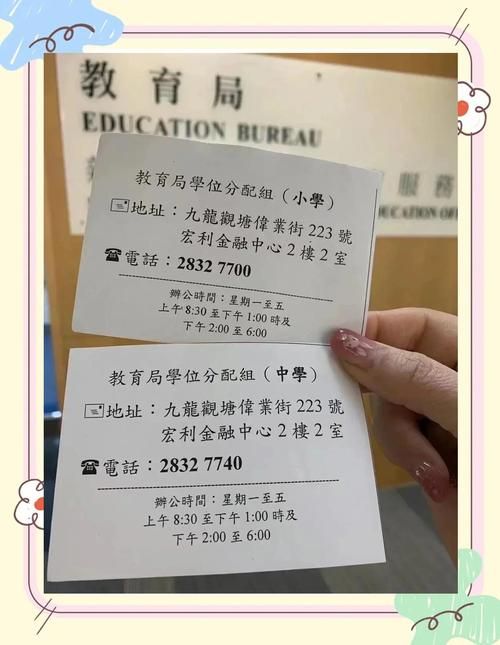 教育局
EDUCATION BUREAU
服務
教育局學位分配組（小學）
地址：九龍觀塘偉業街 223 號
宏利金融中心 2 樓 2 室
電話：2832 7700
辦公時間：星期一至五
上午 8:30 至下午 1:00 時及
下午 2:00 至 6:00
教育局學位分配組（中學）
地址：九龍觀塘偉業街 223 號
宏利金融中心 2 樓 2 室
電話：2832 7740
辦公時間：星期一至五
上午 8:30 至下午 1:00 時及
下午 2:00 至 6:00